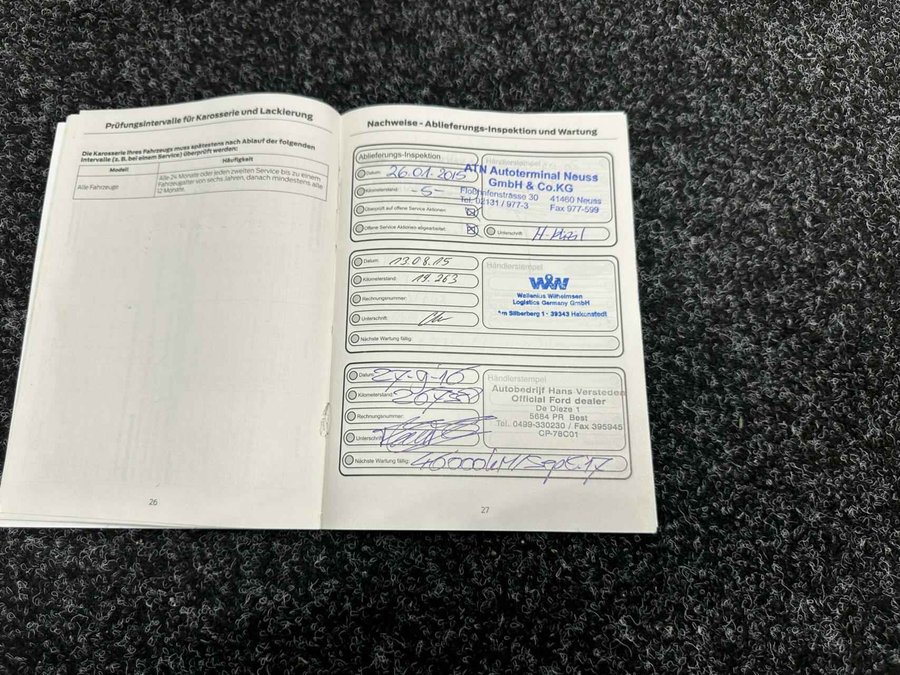 Prüfungsintervalle für Karosserie und Lackierung
Die Karosserie Ihres Fahrzeugs muss spätestens nach Ablauf der folgenden
Intervalle (z. B. bei einem Service) überprüft werden:
Modell Häufigkeit
Alle Fahrzeuge
Alle 24 Monate oder jeden zweiten Service bis zu einem
Fahrzeugalter von sechs Jahren, danach mindestens alle
12 Monate.
26
Nachweise - Ablieferungs-Inspektion und Wartung
Ablieferungs-Inspektion
Händlerstempel
Datum: 26.01.2015
Kilometerstand: -5-
Überprüft auf offene Service Aktionen:
Offene Service Aktionen abgearbeitet:
ATN Autoterminal Neuss
GmbH & Co.KG
Floßhafenstrasse 30 41460 Neuss
Tel. 02131 / 977-3 Fax 977-599
Unterschrift:
Datum: 13.08.15
Kilometerstand: 19.263
Rechnungsnummer:
Unterschrift:
Nächste Wartung fällig:
Händlerstempel
WW
Wallenius Wilhelmsen
Logistics Germany GmbH
Am Silberberg 1 · 39343 Hakenstedt
Datum: 27-9-16
Kilometerstand:
Rechnungsnummer:
Unterschrift:
Nächste Wartung fällig: 46000kM/Sept.17
Händlerstempel
Autobedrijf Hans Versteden
Official Ford dealer
De Dieze 1
5684 PR Best
Tel. 0499-330230 / Fax 395945
CP-78C01
27